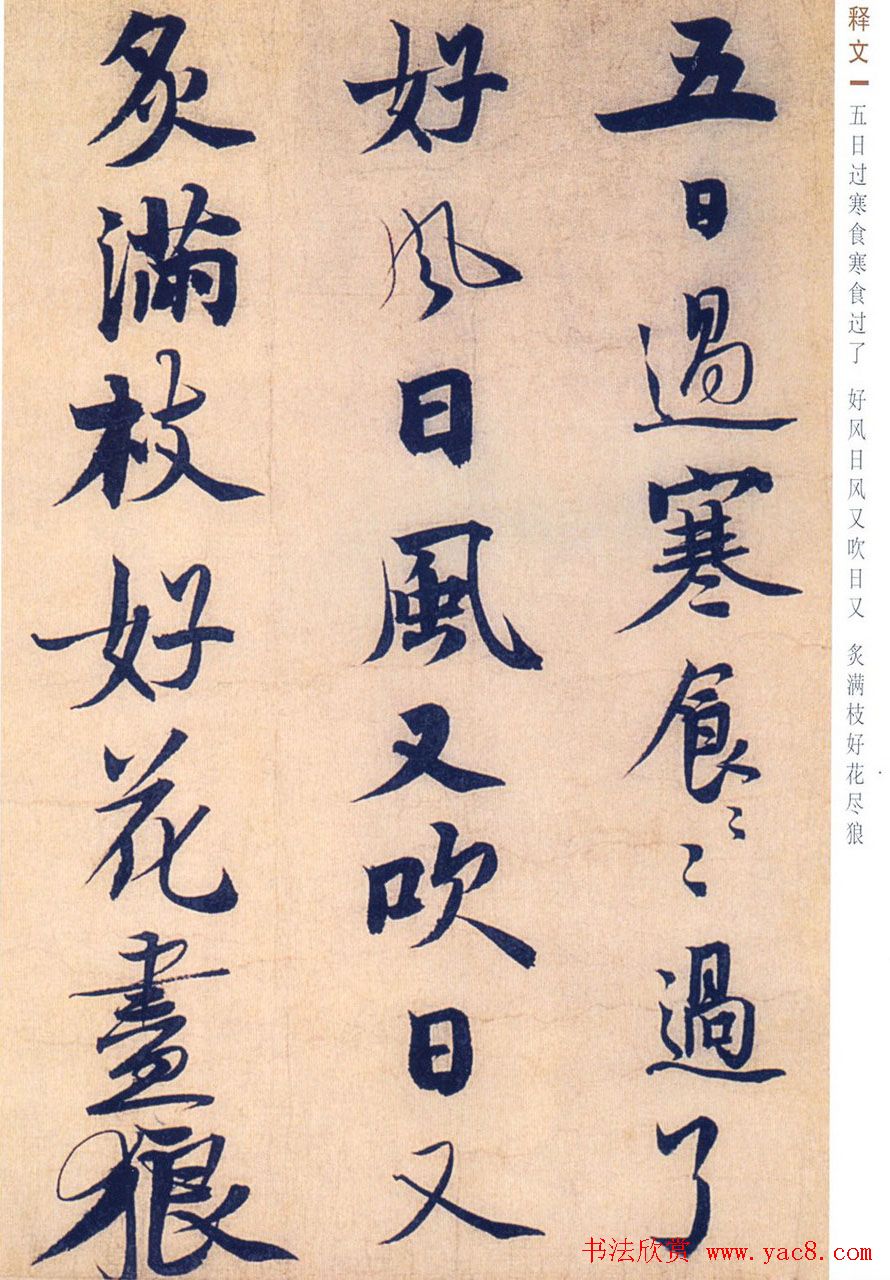 释文
五日过寒食寒食过了 好风日风又吹日又 炙满枝好花尽狼
五日過寒食〻〻過了
好風日風又吹日又
炙滿枝好花盡狼
书法欣赏 www.yac8.com